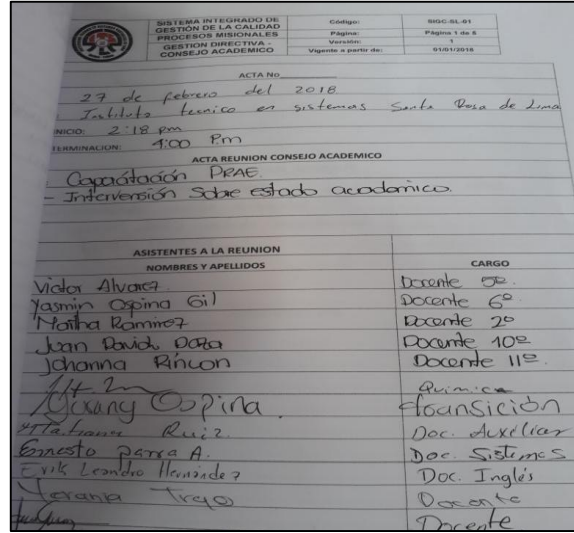 SISTEMA INTEGRADO DE GESTIÓN DE LA CALIDAD
PROCESOS MISIONALES
GESTION DIRECTIVA - CONSEJO ACADEMICO
Código: SIGC-SL-01
Página: Página 1 de 5
Versión: 1
Vigente a partir de: 01/01/2018
ACTA No
27 de febrero del 2018
Instituto tecnico en sistemas Santa Rosa de Lima
NICIO: 2:18 pm
TERMINACION: 4:00 Pm
ACTA REUNION CONSEJO ACADEMICO
- Capacitación PRAE.
- Intervensión Sobre estado academico.
ASISTENTES A LA REUNION
NOMBRES Y APELLIDOS CARGO
Victor Alvarez Docente 5º.
Yasmin Ospina Gil Docente 6º
Martha Ramirez Docente 2º
Juan David Daza Docente 10º
Johanna Rincon Docente 11º.
Quimica
Ospina. transición
Ruiz. Doc. Auxiliar
Ernesto Parra A. Doc. Sistemas
Erik Leandro Hernández Doc. Inglés
Docente
Docente